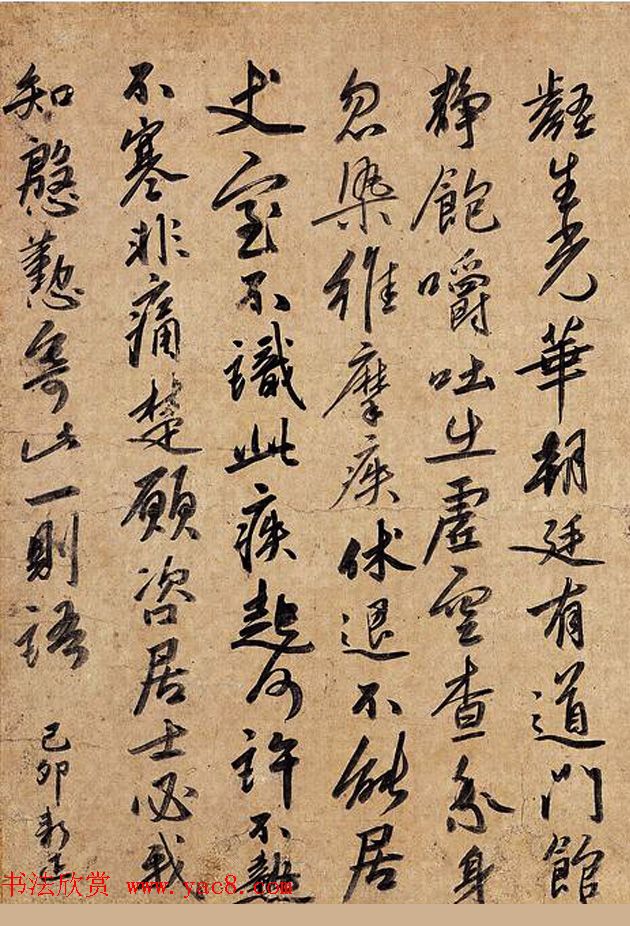 生光華朝廷有道門館
靜飽嚼吐生虛空查身
忽染維摩疾休退不能居
丈室不識此疾起何許不熱
不寒非痛楚願咨居士必我
知慇懃寄此一則語
己卯新正
书法欣赏 www.yac8.com